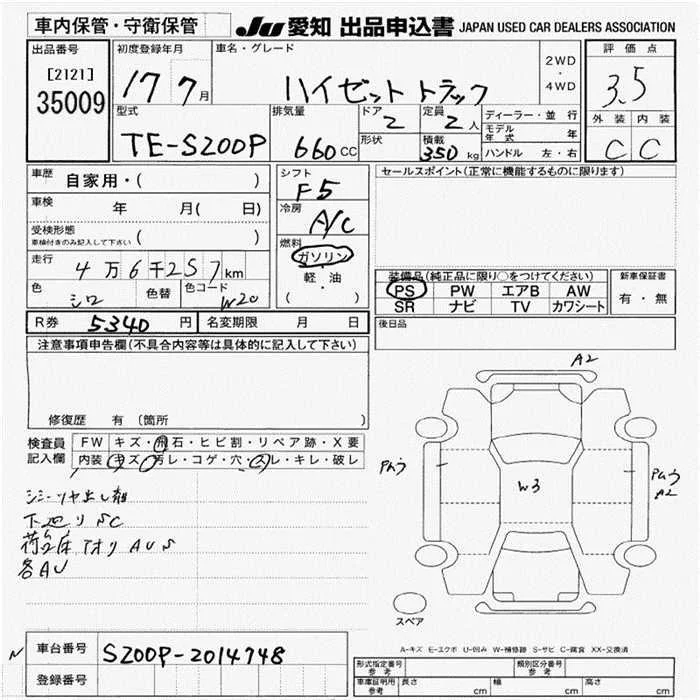 車内保管・守衛保管
JU 愛知 出品申込書 JAPAN USED CAR DEALERS ASSOCIATION
出品番号
[2121]
35009
初度登録年月
17 7月
車名・グレード
ハイゼット トラック
2WD
・
4WD
評価点
3.5
外装 内装
C C
型式
TE-S200P
排気量
660cc
ドア
2
定員
2人
形状
積載
350kg
ディーラー・並行
モデル年式 年
ハンドル 左・右
車歴
自家用・( )
車検
年 月( 日)
受検形態
車検付きのみ記入して下さい ( )
走行
4万6千257km
色
シロ
色替
色コード
W20
R券 5340円
名変期限 月 日
シフト
F5
冷房
A/C
燃料
ガソリン
軽・油
( ・ )
セールスポイント(正常に機能するものに限ります)
装備品(純正品に限り○をつけてください)
PS PW エアB AW
SR ナビ TV カワシート
新車保証書
有・無
後日品
注意事項申告欄(不具合内容等は具体的に記入して下さい)
修復歴 有(箇所 )
検査員記入欄
FW キズ・飛石・ヒビ割・リペア跡・X要
内装 キズ・汚レ・コゲ・穴・スレ・キレ・破レ
下廻りSC
荷台床アオリAUS
各AU
A2
W3
A2
スペア
A-キズ E-エクボ U-凹み W-補修跡 S-サビ C-腐食 XX-交換済
車台番号
S200P-2014748
登録番号
形式指定番号
参考
類別区分番号
参考
車庫証明用
参考
長さ cm 幅 cm 高さ cm